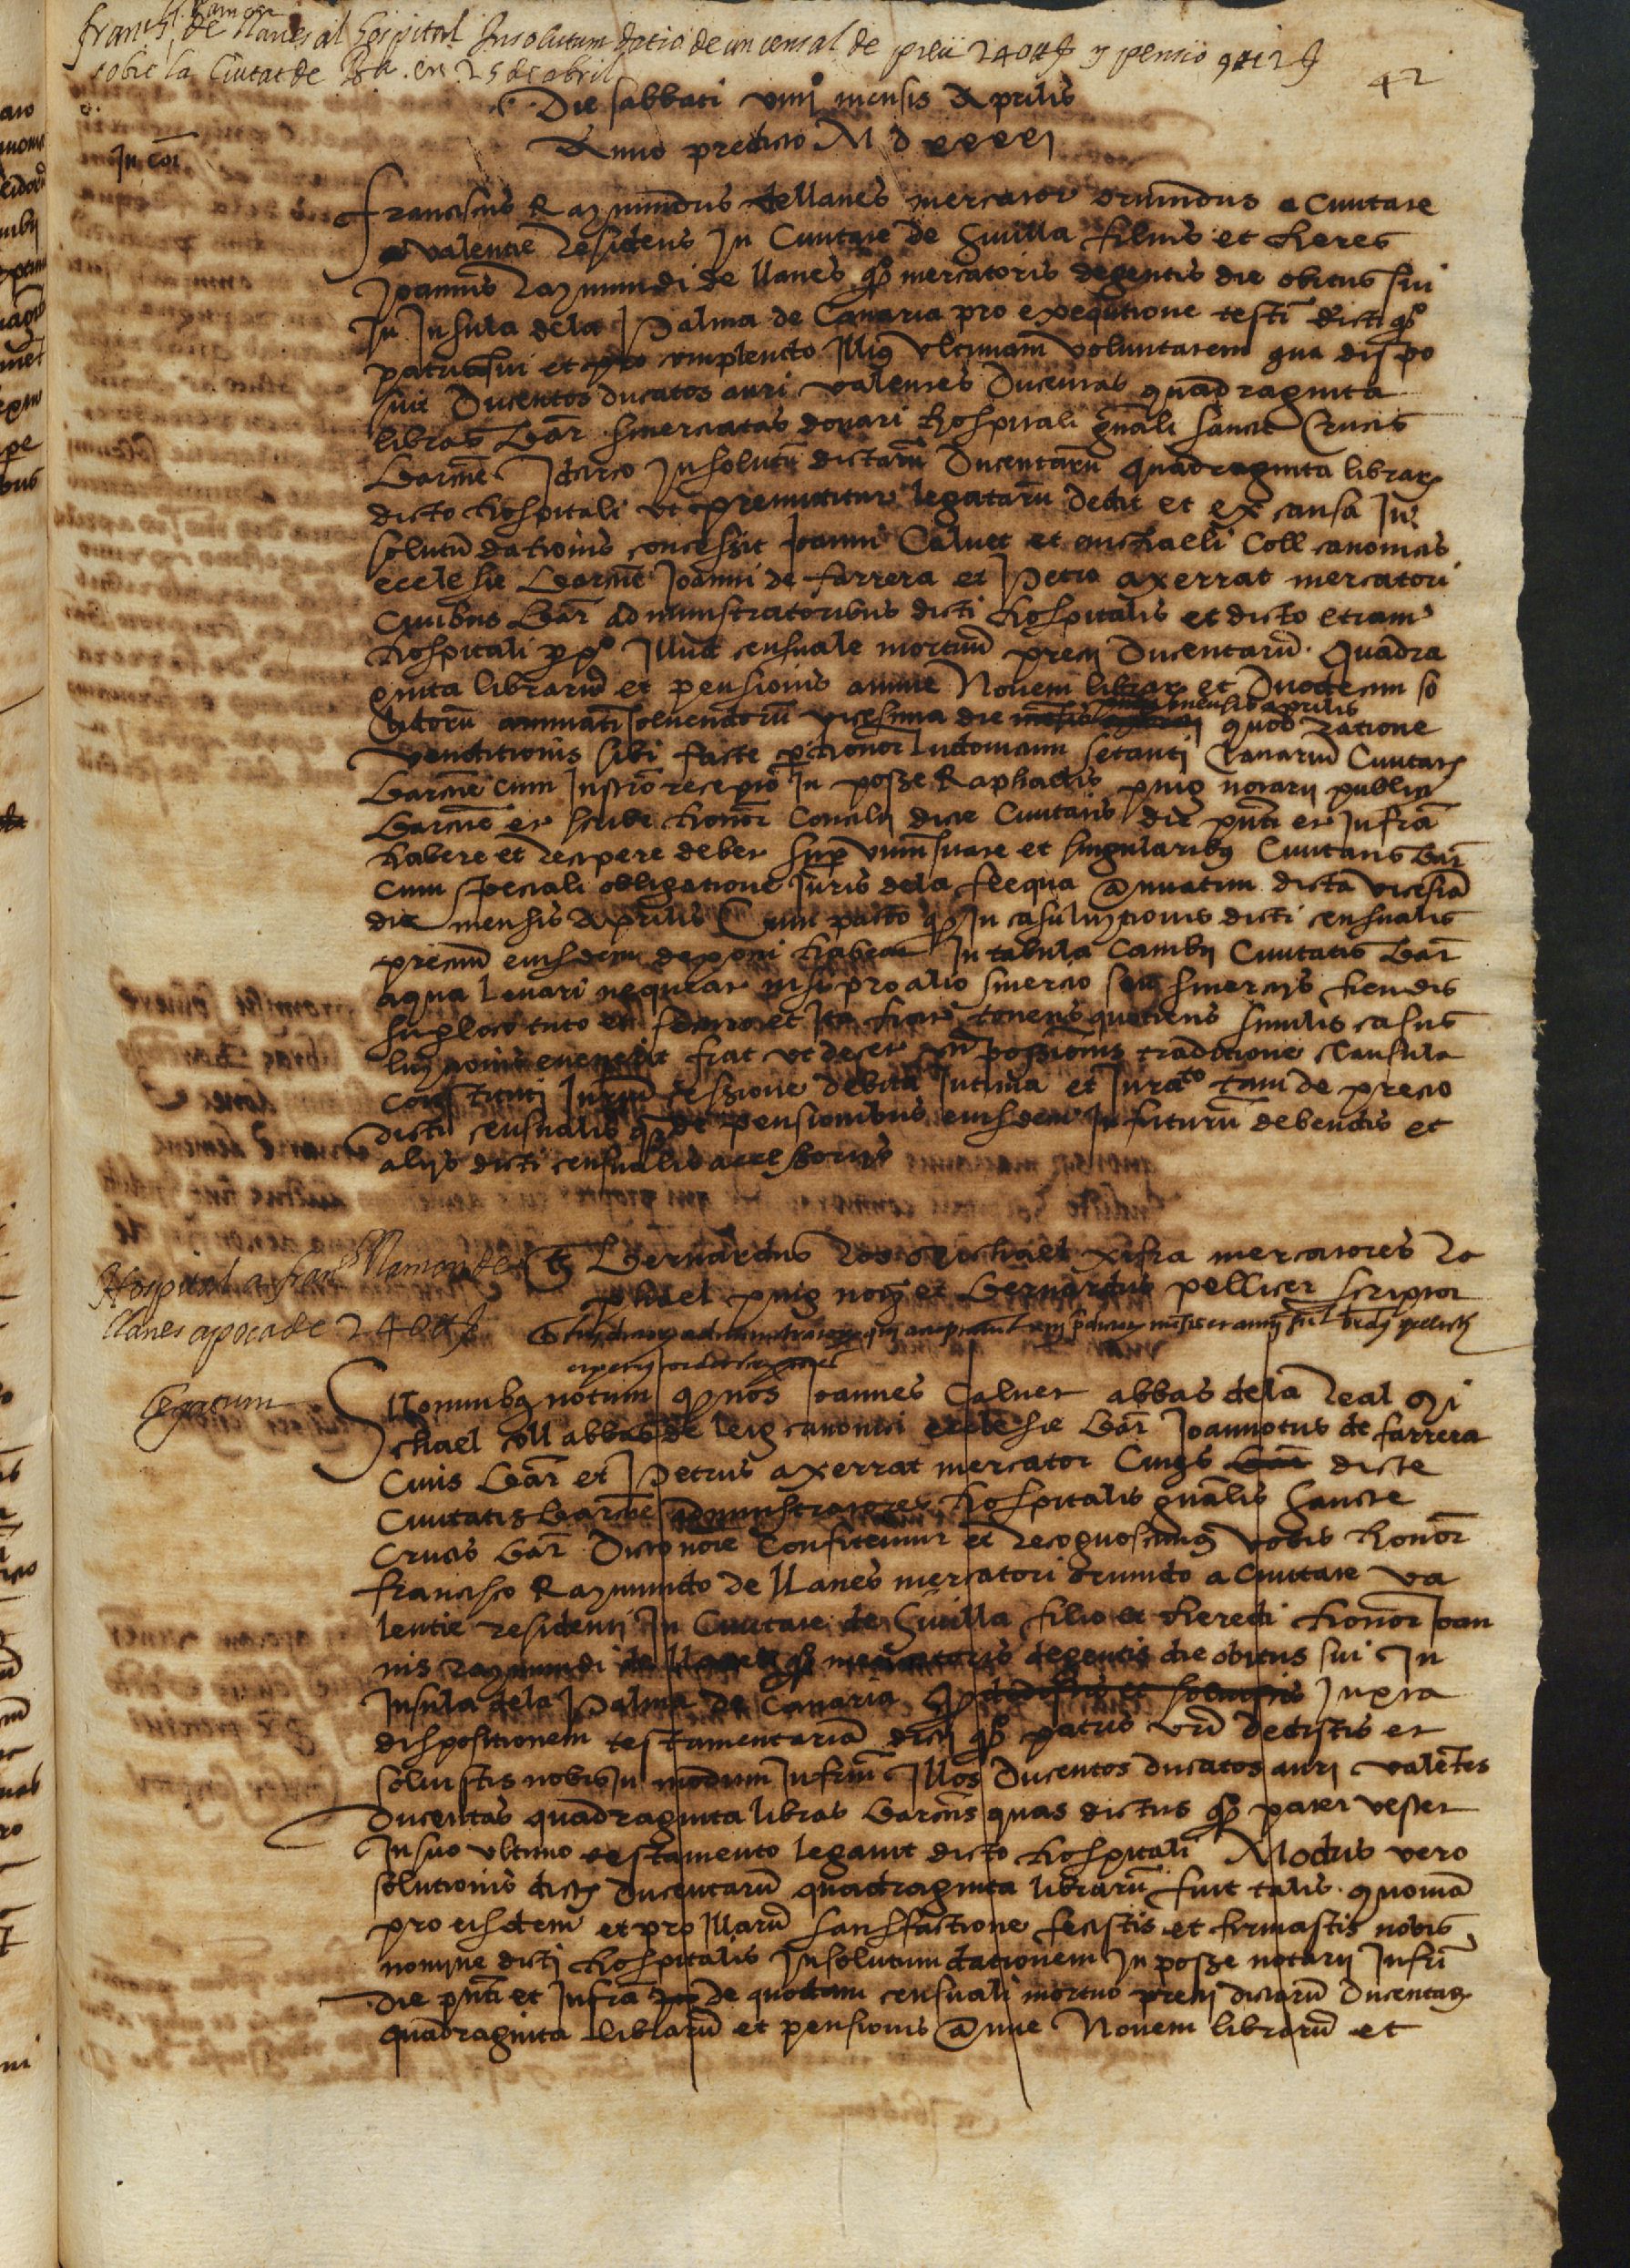 franc. Ramon
de llanes al Hospital Insolutum datio de un censal de preu 240 ll y pensio 9 ll 12 s
sobre la Ciutat de Ba. en 25 de abril
42
Die sabbati mensis Aprilis
Anno predicto M D xxxx
In coi.
Franciscus Raymundus dellanes mercator oriundus a Civitate
valentie residens In Civitate de Sivilla filius et heres
Joannis Raymundi de llanes qo mercatoris degentis die obitus sui
In Insula dela Palma de Canaria pro exequtione testi dicti qo
patris sui et complendo Illius ultimam voluntatem qua dispo
suit Ducentos ducatos auri valentes Ducentas quadraginta
libras Bar. smerciatas donari hospitali gnali sancte Crucis
Barcne Idcirco Insolutu dictaru Ducentaru quadraginta librar
dicto hospitali ut premittitur legataru Dedit et ex causa In
solutu dationis concessit Joanni Calvet et michaeli Coll canonicis
ecclesie Barcne Joanni de farrera et Petro axerrat mercatori
Civibus Bar administratoribus dicti hospitalis et dicto etiam
hospitali Illud censuale mortuu precij Ducentaru Quadra
ginta libraru et pensionis annue Novem librar et Duodecim so
lidoru annuati solvendoru vicesima die mensis aprilis quod ratione
venditionis sibi facte honor ludovicum setanti Clavariu Civitatis
Barcne cum Instro recepto In posse Raphaelis puig notarij publici
Barcne et scribe honor Consilij dicte Civitatis die pnti et Infra
habere et recipere debet sup universitate et singularibus Civitatis Bar
cum speciali obligatione Juris dela fleequa annuatim dicta vicesia
die mensis Aprilis Cum pacto q In casu luytionis dicti censualis
precium eiusdem deponi habeat In tabula Cambij Civitatis Bar
a qua levari nequeat nisi pro alio smercio seu smercijs fiendis
In loco tuto et securo et Ita fieri totiens quotiens similis casus
luytionis evenerit fiat ut decet possionis traditione clausula
constituti Jurium cessione debita Intima et Jurato tam de precio
dicti censualis q de pensionibus eiusdem In futuru debendis et
alijs dicti censualis accessorijs
Ts Bernardus ros michael xifra mercatores ra
phael puig noty et Bernardus pellicer scriptor
Hospital a franc Ramon de
llanes apoca de 240 ll
legatum
Sit omnibus notum q nos Joannes Calvet abbas dela Real Mi
chael coll abbas de lerg canonici ecclesie Bar Joannotus de farrera
Civis Bar et Petrus axerrat mercator Civis Bar dicte
Civitatis Barcne administratores hospitalis gnalis Sancte
Crucis Bar Dicto noie Confitemur et recognoscimus vobis honor
francisco Raymundo de llanes mercatori oriundo a Civitate va
lentie residenti In Civitate de Sivilla filio et heredi honor Joan
nis raymundi de llanes qo mercatoris degentis die obitus sui In
Insula dela Palma de Canaria q dedistis et solvistis Juxta
dispositionem testamentaria dicti qo patris vri dedistis et
solvistis nobis In modum Infrm Illos Ducentos ducatos auri valetes
Ducentas quadraginta libras Barcns quas dictus qo pater vester
In suo ultimo testamento legavit dicto hospitali Modus vero
solutionis dictar Ducentaru quadraginta libraru fuit talis quonia
pro eisdem et pro Illaru satisfactione fecistis et firmastis nobis
nomine dicti hospitalis Insolutum dationem In posse notarij Infri
die pnti et Infra de quodam censuali mortuo precij dictaru Ducentar
quadraginta libraru et pensionis annue Novem libraru et